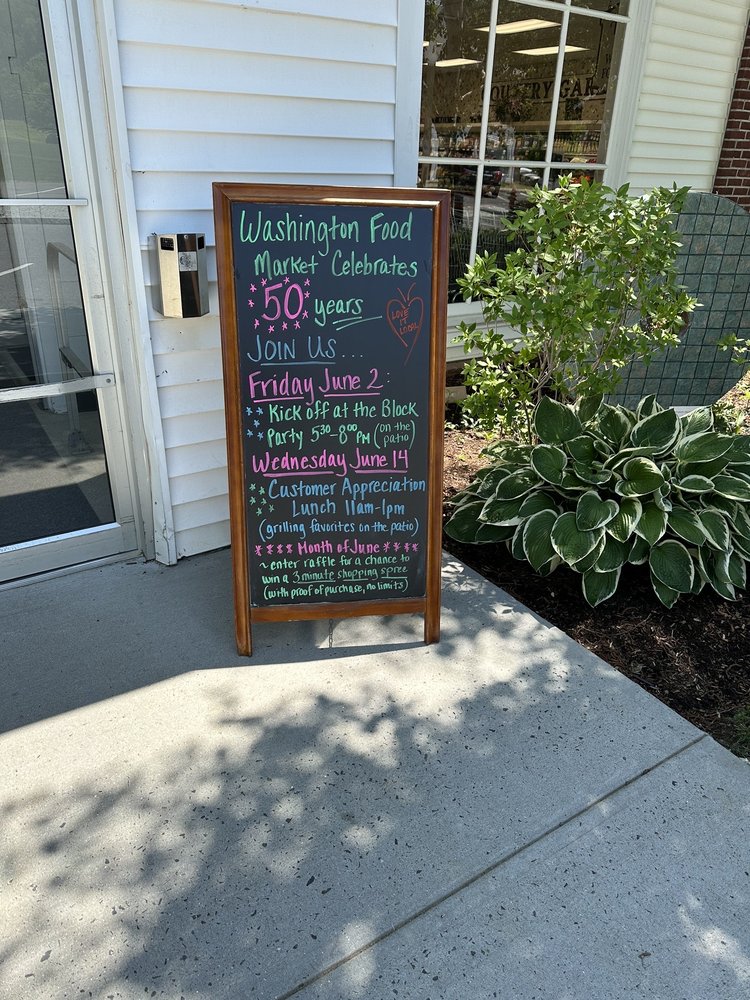 Washington Food
Market Celebrates
50 years
LOVE
IT
LOCAL
JOIN US...
Friday June 2:
Kick off at the Block
Party 5³⁰-8⁰⁰PM (on the
patio)
Wednesday June 14
Customer Appreciation
Lunch 11am-1pm
(grilling favorites on the patio)
Month of June
~ enter raffle for a chance to
win a 3 minute shopping spree
(with proof of purchase, no limits)